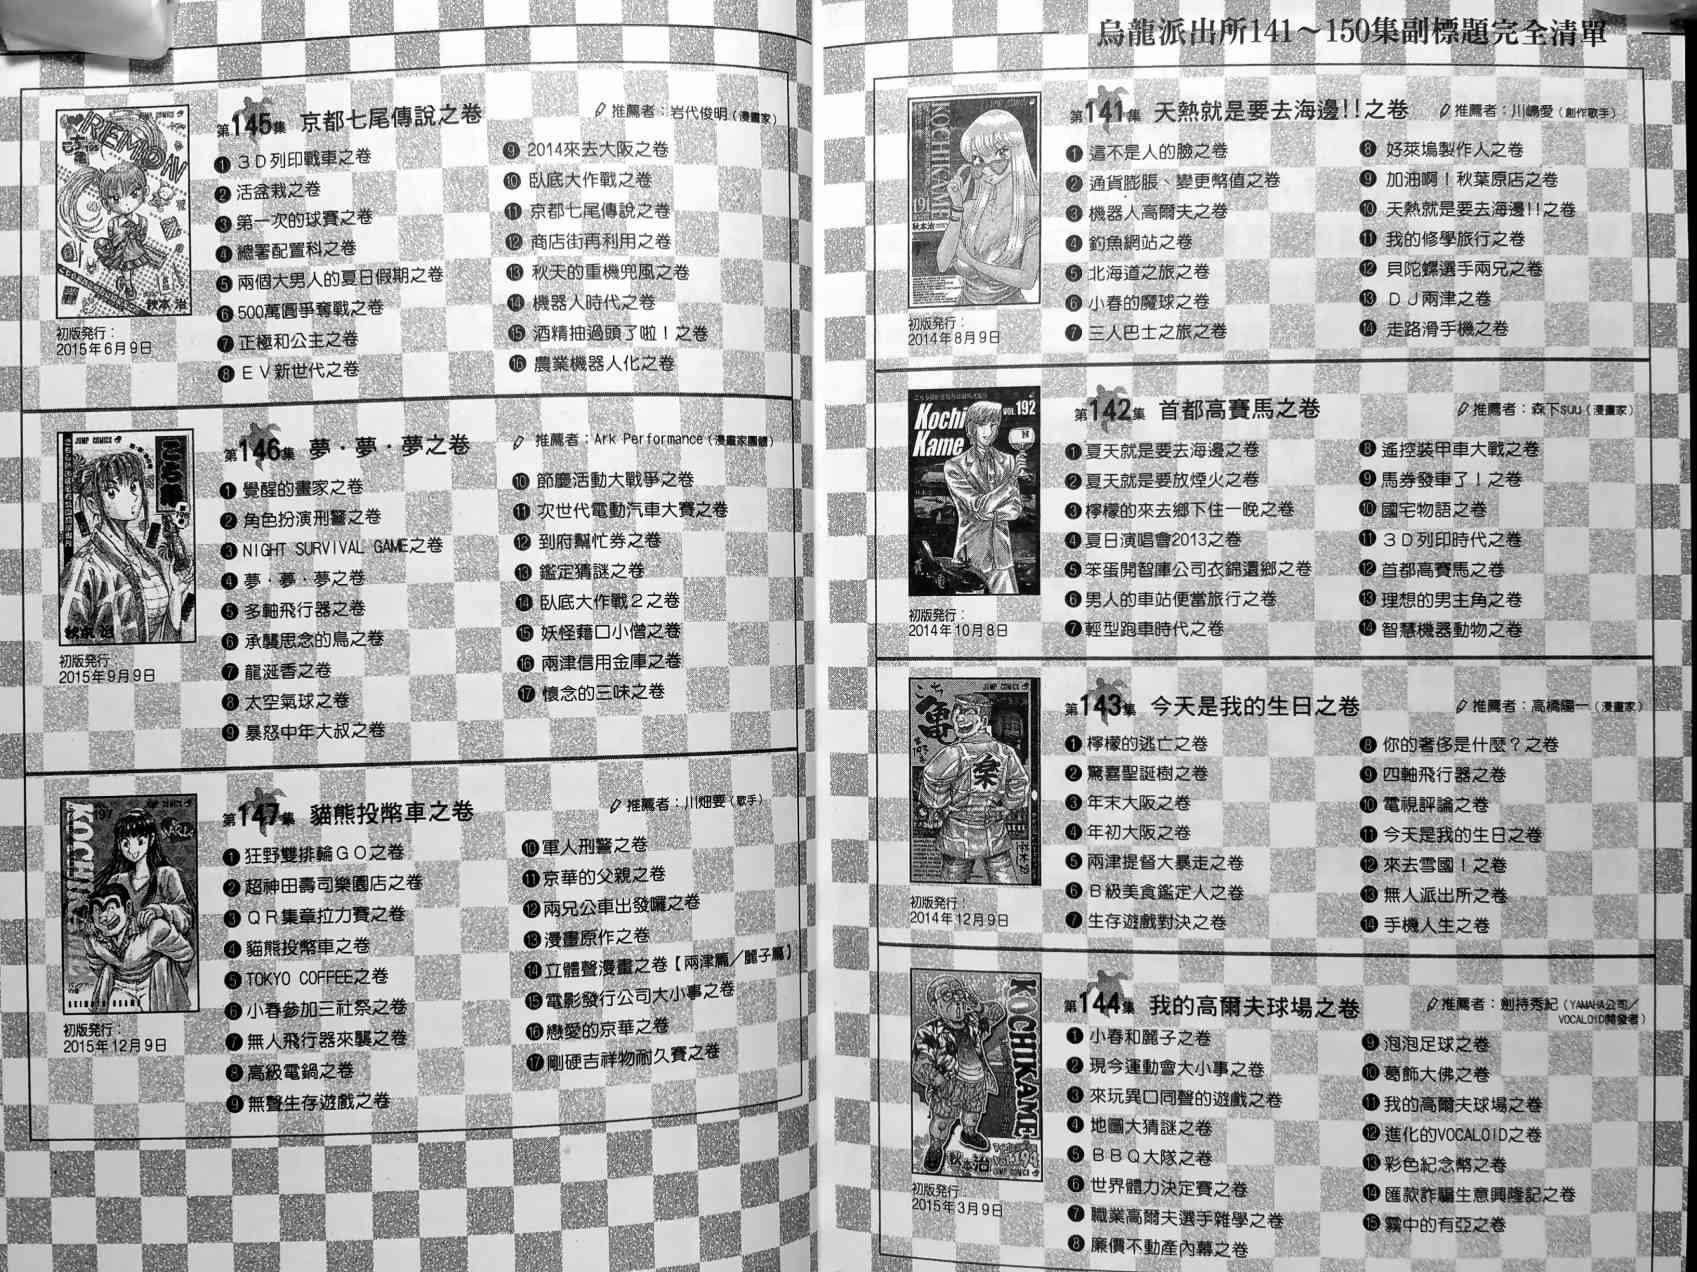 烏龍派出所141～150集副標題完全清單
第141集 天熱就是要去海邊!!之卷
推薦者：川嶋愛（創作歌手）
❶ 這不是人的臉之卷
❷ 通貨膨脹、變更幣值之卷
❸ 機器人高爾夫之卷
❹ 釣魚網站之卷
❺ 北海道之旅之卷
❻ 小春的魔球之卷
❼ 三人巴士之旅之卷
❽ 好萊塢製作人之卷
❾ 加油啊！秋葉原店之卷
❿ 天熱就是要去海邊!!之卷
⓫ 我的修學旅行之卷
⓬ 貝陀螺選手兩兄之卷
⓭ ＤＪ兩津之卷
⓮ 走路滑手機之卷
KOCHIKAME
初版発行：
2014年8月9日
第142集 首都高賽馬之卷
推薦者：森下suu（漫畫家）
❶ 夏天就是要去海邊之卷
❷ 夏天就是要放煙火之卷
❸ 檸檬的來去鄉下住一晚之卷
❹ 夏日演唱會2013之卷
❺ 笨蛋開智庫公司衣錦還鄉之卷
❻ 男人的車站便當旅行之卷
❼ 輕型跑車時代之卷
❽ 遙控裝甲車大戰之卷
❾ 馬券發車了！之卷
❿ 國宅物語之卷
⓫ ３Ｄ列印時代之卷
⓬ 首都高賽馬之卷
⓭ 理想的男主角之卷
⓮ 智慧機器動物之卷
Kochi
Kame
VOL.192
初版発行：
2014年10月8日
第143集 今天是我的生日之卷
推薦者：高橋陽一（漫畫家）
❶ 檸檬的逃亡之卷
❷ 驚喜聖誕樹之卷
❸ 年末大阪之卷
❹ 年初大阪之卷
❺ 兩津提督大暴走之卷
❻ Ｂ級美食鑑定人之卷
❼ 生存遊戲對決之卷
❽ 你的奢侈是什麼？之卷
❾ 四軸飛行器之卷
❿ 電視評論之卷
⓫ 今天是我的生日之卷
⓬ 來去雪國！之卷
⓭ 無人派出所之卷
⓮ 手機人生之卷
初版発行：
2014年12月9日
第144集 我的高爾夫球場之卷
推薦者：劍持秀紀（YAMAHA公司／
VOCALOID開發者）
❶ 小春和麗子之卷
❷ 現今運動會大小事之卷
❸ 來玩異口同聲的遊戲之卷
❹ 地圖大猜謎之卷
❺ ＢＢＱ大隊之卷
❻ 世界體力決定賽之卷
❼ 職業高爾夫選手雜學之卷
❽ 廉價不動產內幕之卷
❾ 泡泡足球之卷
❿ 葛飾大佛之卷
⓫ 我的高爾夫球場之卷
⓬ 進化的VOCALOID之卷
⓭ 彩色紀念幣之卷
⓮ 匯款詐騙生意興隆記之卷
⓯ 霧中的有亞之卷
KOCHIKAME
秋本治
初版発行：
2015年3月9日
第145集 京都七尾傳說之卷
推薦者：岩代俊明（漫畫家）
❶ ３Ｄ列印戰車之卷
❷ 活盆栽之卷
❸ 第一次的球賽之卷
❹ 總署配置科之卷
❺ 兩個大男人的夏日假期之卷
❻ 500萬圓爭奪戰之卷
❼ 正極和公主之卷
❽ ＥＶ新世代之卷
❾ 2014來去大阪之卷
❿ 臥底大作戰之卷
⓫ 京都七尾傳說之卷
⓬ 商店街再利用之卷
⓭ 秋天的重機兜風之卷
⓮ 機器人時代之卷
⓯ 酒精抽過頭了啦！之卷
⓰ 農業機器人化之卷
REMON
秋本 治
初版発行：
2015年6月9日
第146集 夢・夢・夢之卷
推薦者：Ark Performance（漫畫家團體）
❶ 覺醒的畫家之卷
❷ 角色扮演刑警之卷
❸ NIGHT SURVIVAL GAME之卷
❹ 夢・夢・夢之卷
❺ 多軸飛行器之卷
❻ 承襲思念的鳥之卷
❼ 龍涎香之卷
❽ 太空氣球之卷
❾ 暴怒中年大叔之卷
❿ 節慶活動大戰爭之卷
⓫ 次世代電動汽車大賽之卷
⓬ 到府幫忙券之卷
⓭ 鑑定猜謎之卷
⓮ 臥底大作戰２之卷
⓯ 妖怪藉口小僧之卷
⓰ 兩津信用金庫之卷
⓱ 懷念的三味之卷
JUMP COMICS
秋本 治
初版発行：
2015年9月9日
第147集 貓熊投幣車之卷
推薦者：川畑要（歌手）
❶ 狂野雙排輪ＧＯ之卷
❷ 超神田壽司樂園店之卷
❸ ＱＲ集章拉力賽之卷
❹ 貓熊投幣車之卷
❺ TOKYO COFFEE之卷
❻ 小春參加三社祭之卷
❼ 無人飛行器來襲之卷
❽ 高級電鍋之卷
❾ 無聲生存遊戲之卷
❿ 軍人刑警之卷
⓫ 京華的父親之卷
⓬ 兩兄公車出發囉之卷
⓭ 漫畫原作之卷
⓮ 立體聲漫畫之卷【兩津篇／麗子篇】
⓯ 電影發行公司大小事之卷
⓰ 戀愛的京華之卷
⓱ 剛硬吉祥物耐久賽之卷
初版発行：
2015年12月9日